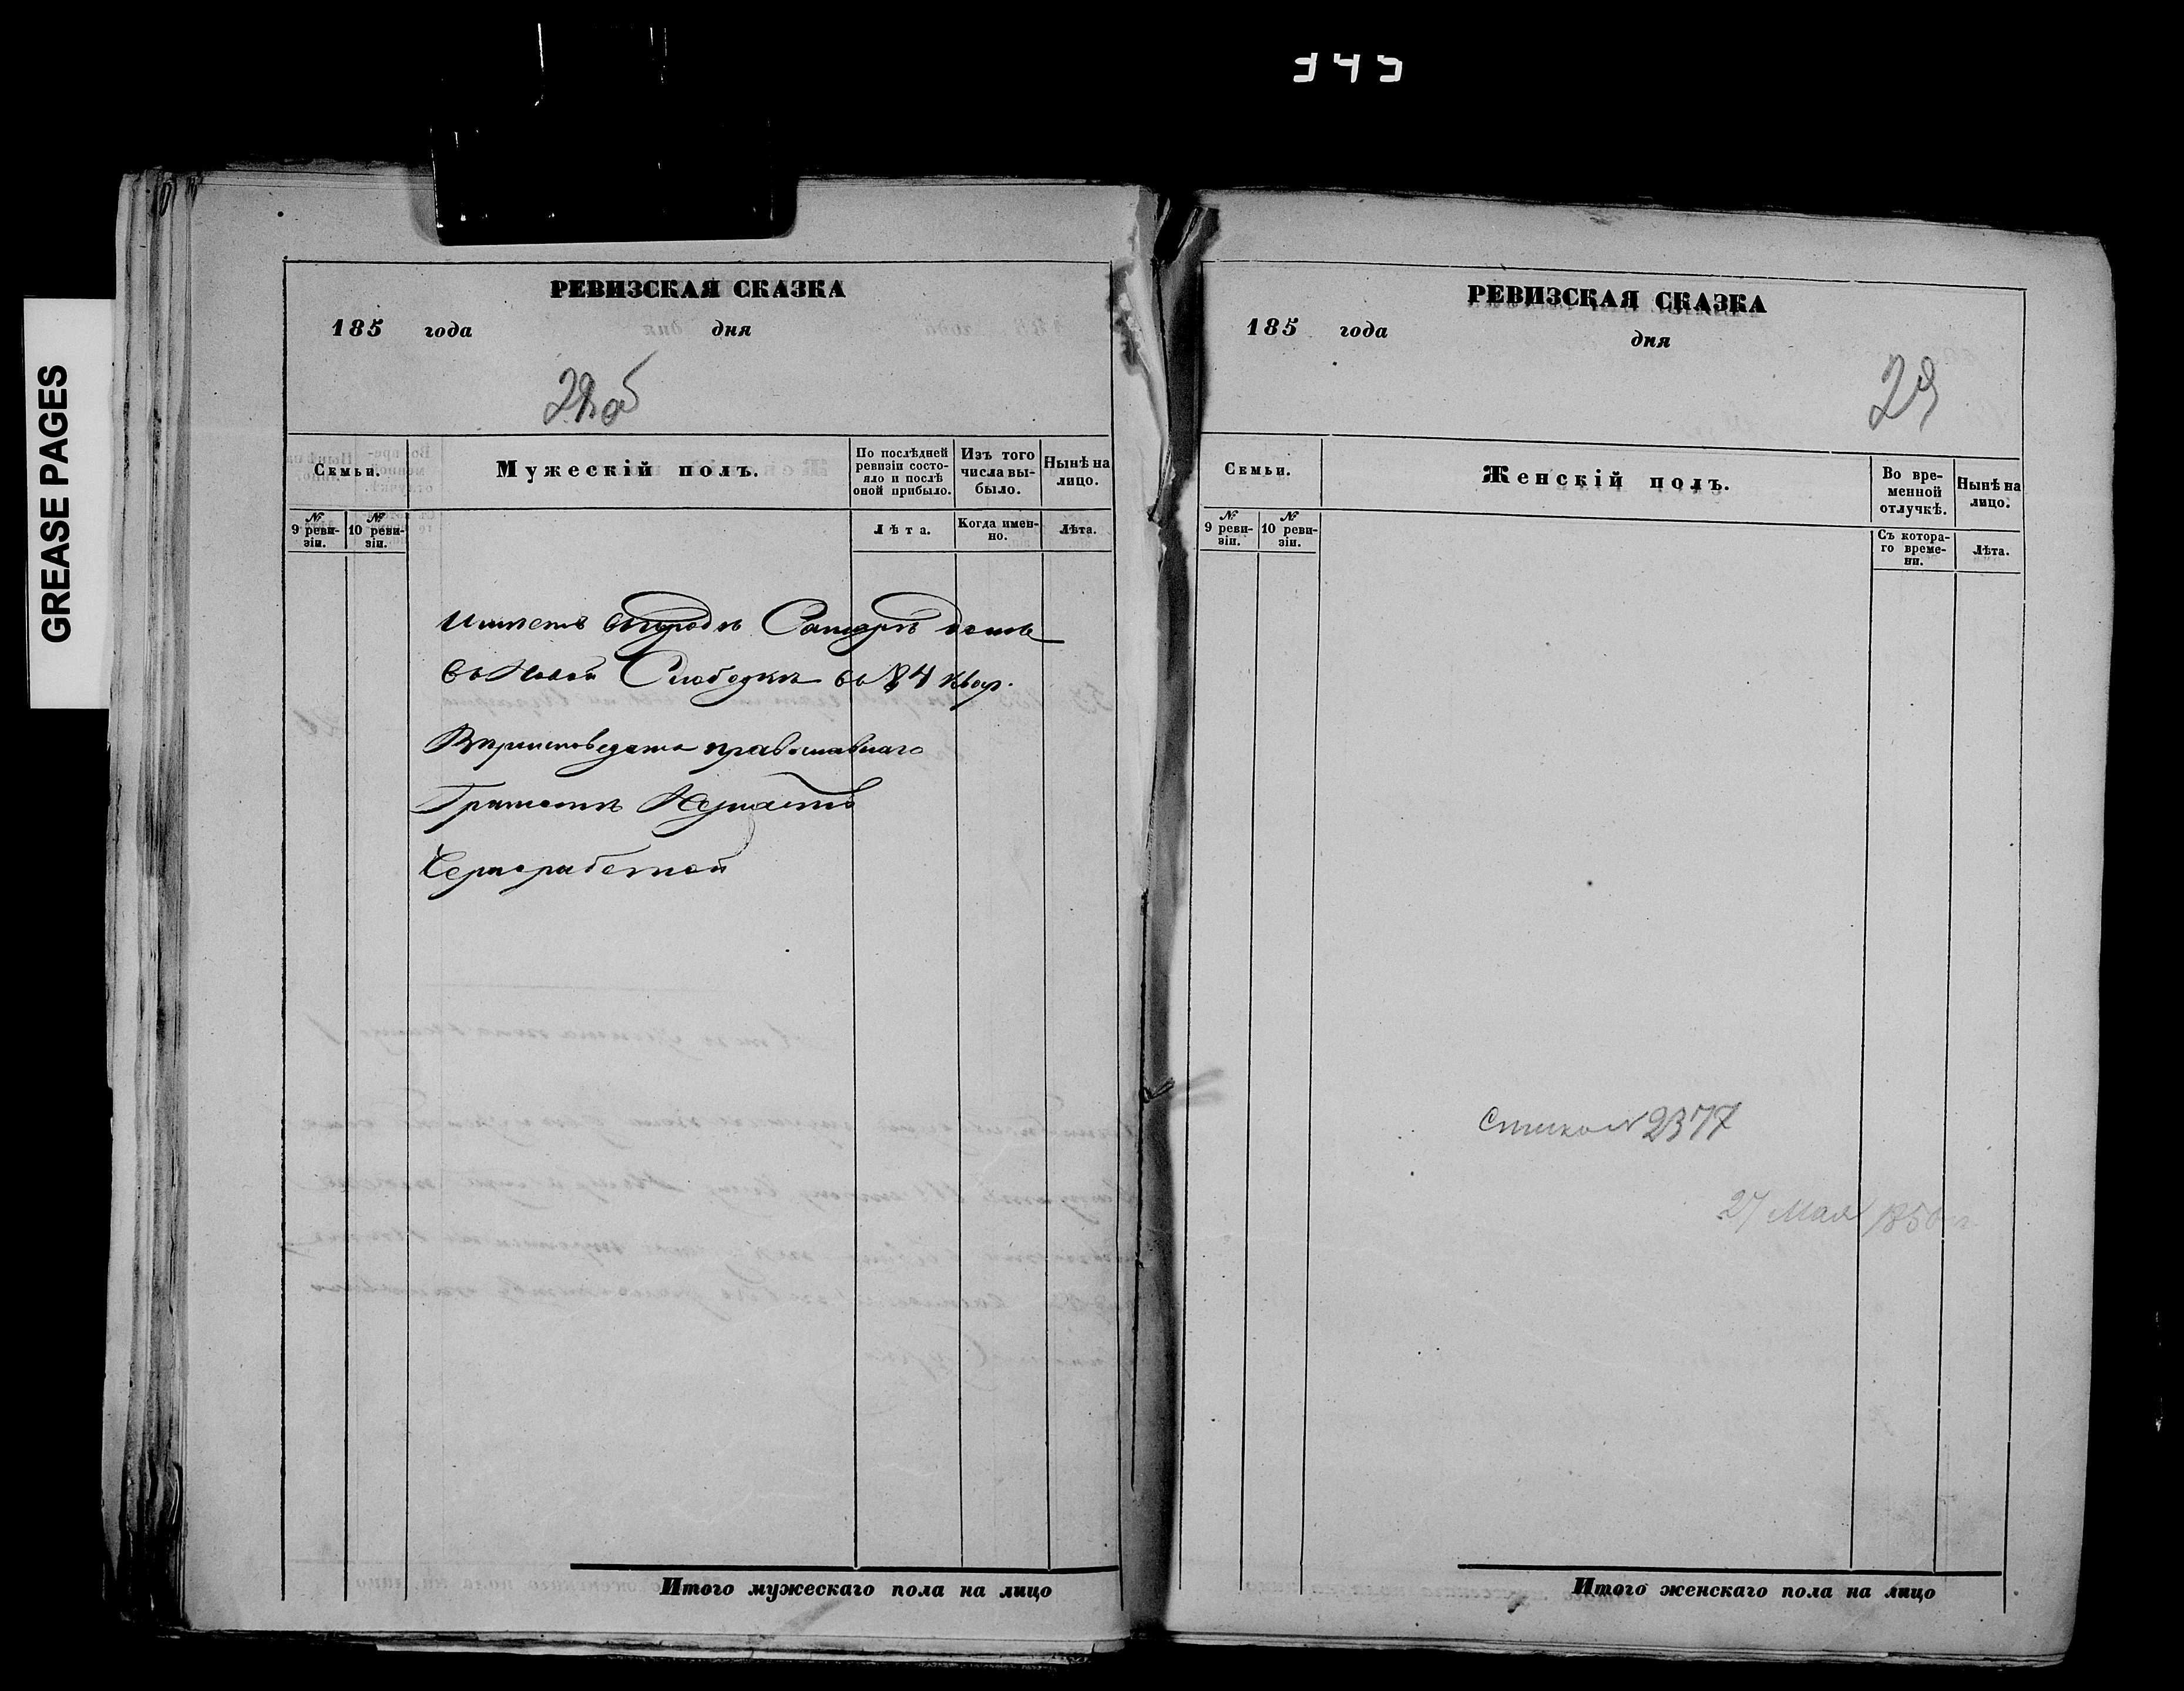 GREASE PAGES
РЕВИЗСКАЯ СКАЗКА
185 года дня
28 об
Семьи.
Мужескій полъ.
По послѣдней ревизіи состояло и послѣ оной прибыло.
Изъ того числа выбыло.
Нынѣ на лицо.
№ 9 ревизіи.
№ 10 ревизіи.
Лѣта.
Когда именно.
Лѣта.
Имѣетъ въ городѣ Самарѣ домъ
въ Новой Слободкѣ въ 84 квар.
Вѣроисповеданія православнаго
Грамотѣ Незнаетъ
Чернорабочей
Итого мужескаго пола на лицо
РЕВИЗСКАЯ СКАЗКА
185 года дня
29
Семьи.
Женскій полъ.
Во временной отлучкѣ.
Нынѣ на лицо.
№ 9 ревизіи.
№ 10 ревизіи.
Съ котораго времени.
Лѣта.
№ 2377
27 Мая 185
Итого женскаго пола на лицо